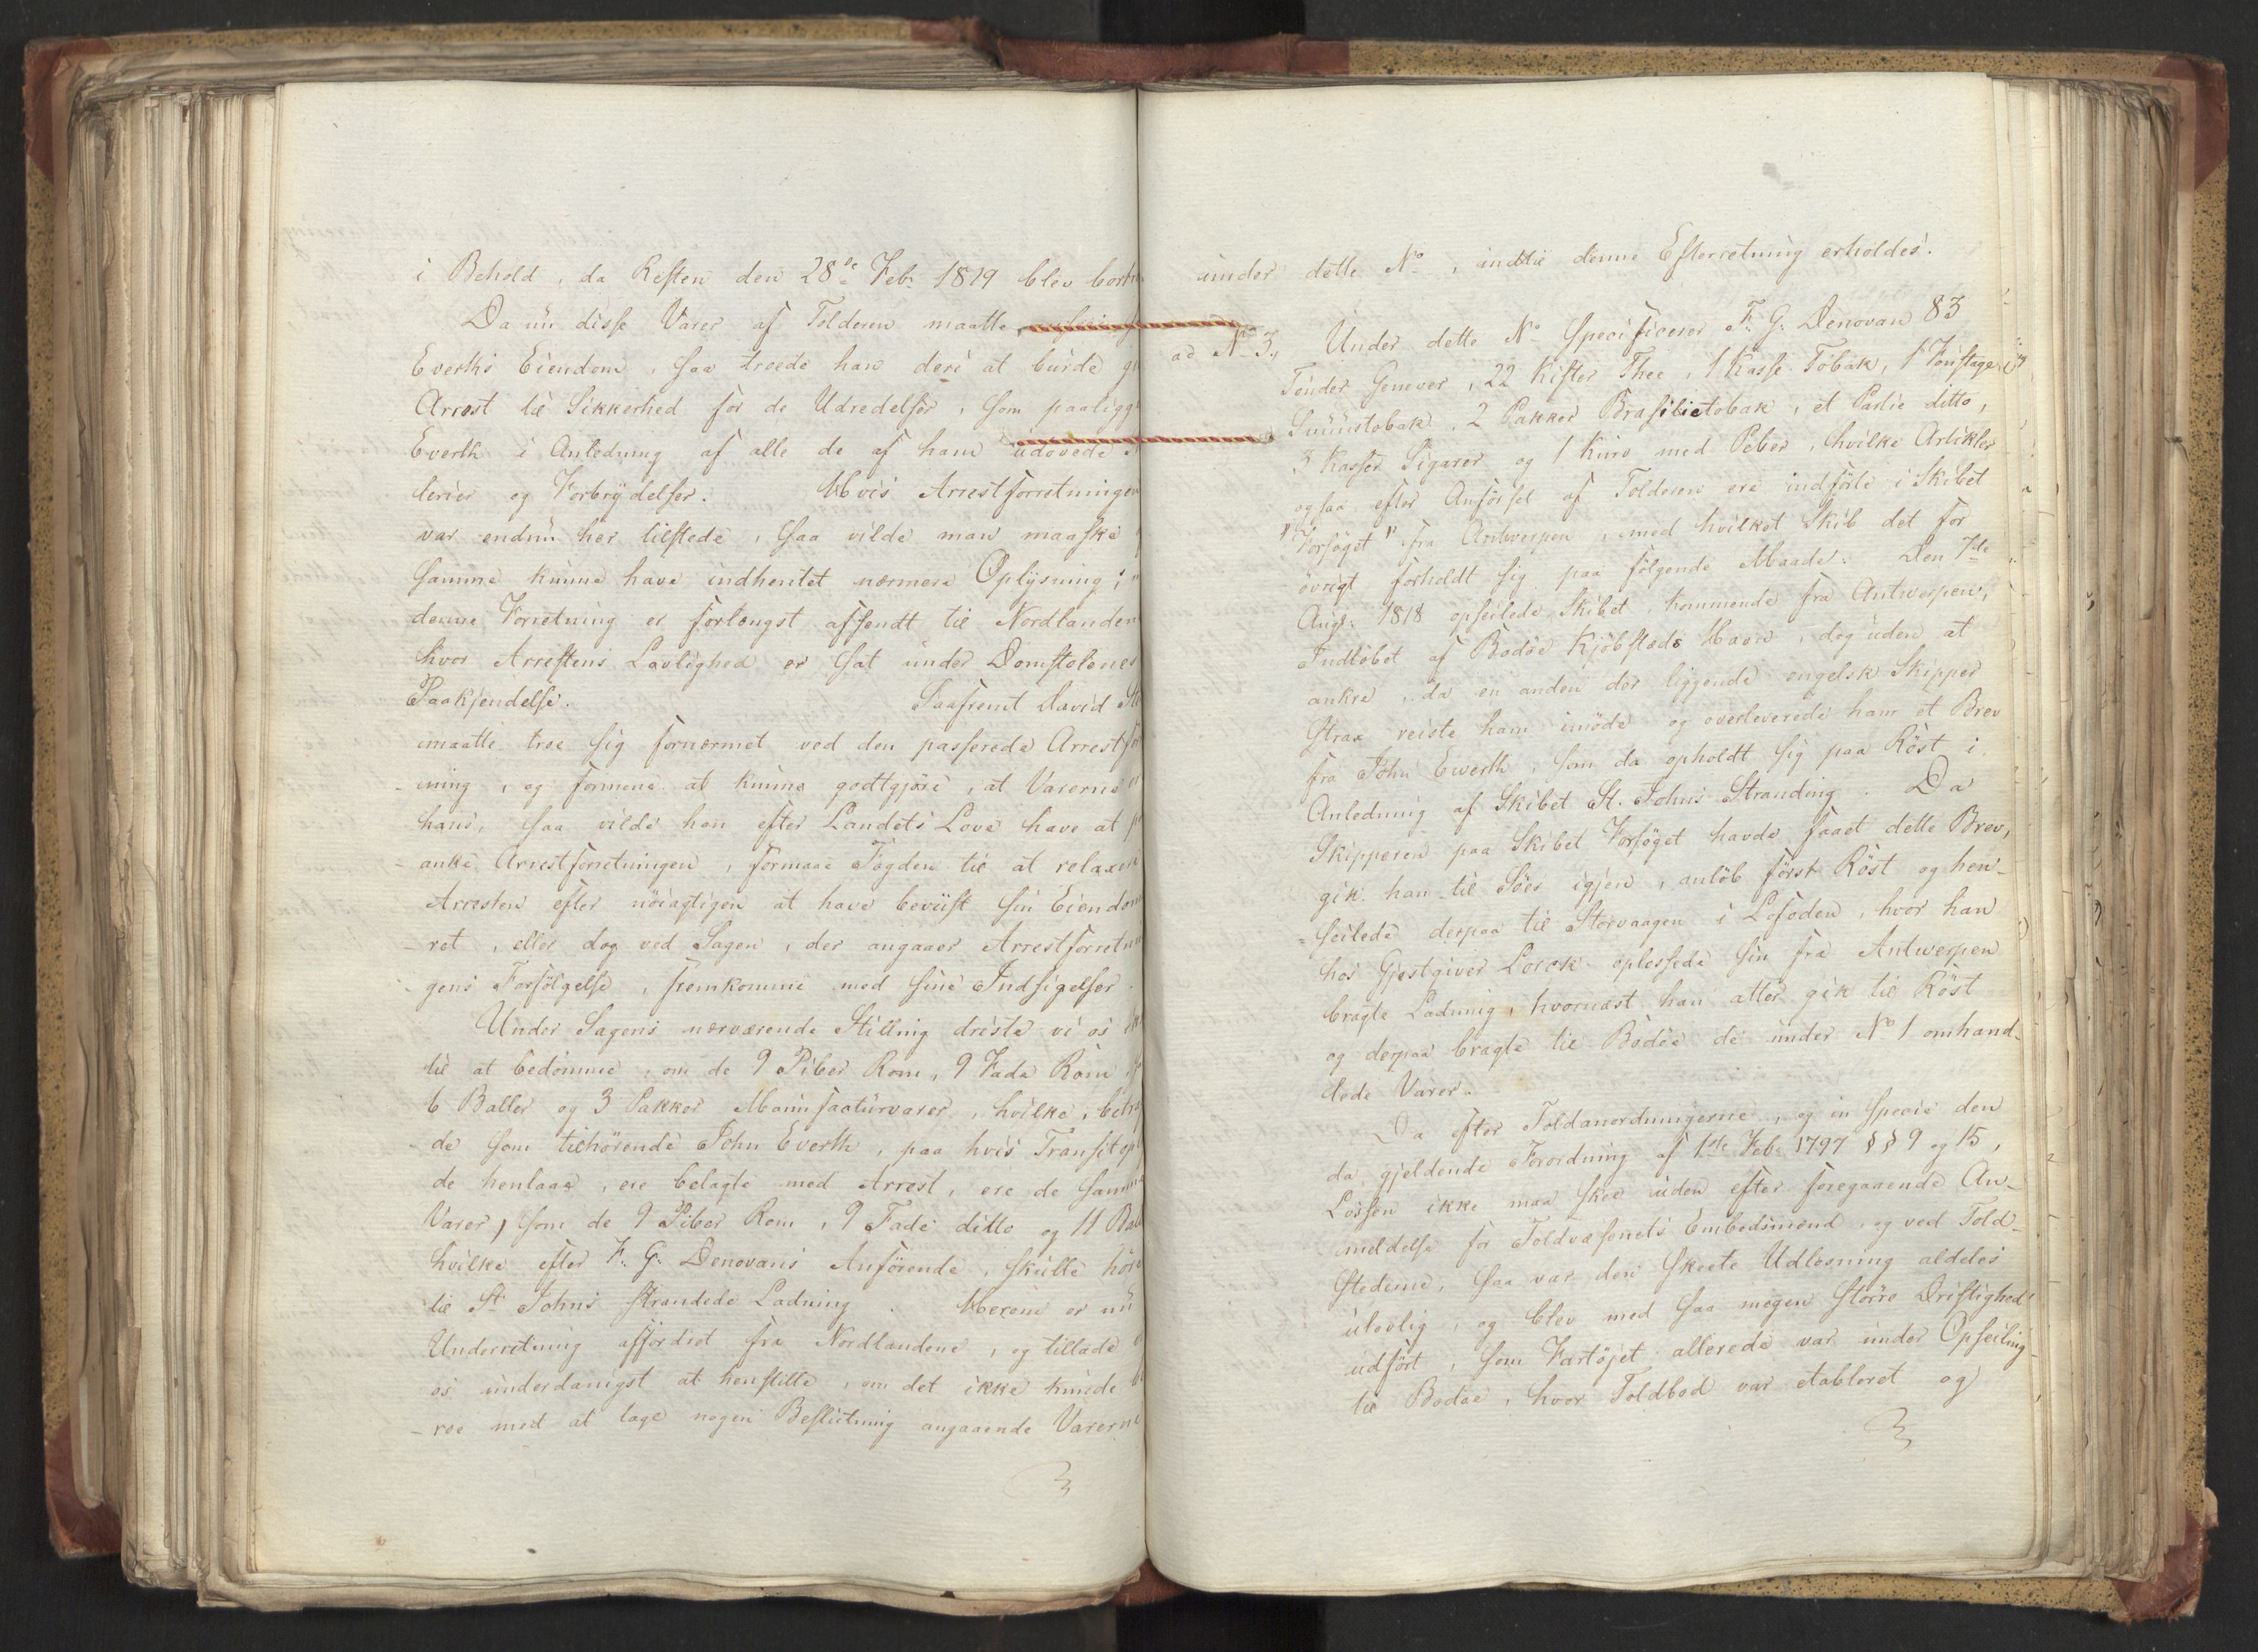 i Behold, da Resten den 28de Febr 1819 blev
Da nu disse Varer af Tolderen maatte
Everths Eiendom, saa troede han deri at burde
Arrest til Sikkerhed for de Udredelser, som
Everth i Anledning af alle de af ham udøvede
lerier og Forbrydelser. Hvis Arrestforretningen
var endnu her tilstede, saa vilde man maaske
samme kunne have indhentet nærmere Oplysning;
denne Forretning er forlængst afsendt til Nordlanden
hvor Arrestens Lovlighed er sat under Domstolenes
Paakjendelse. Saafremt David
maatte troe sig fornærmet ved den passerede
-ning, og formene at kunne godtgjøre, at Varerne
hans, saa vilde han efter Landets Love have at
-anke Arrestforretningen, formaae Fogden til at
Arresten efter nøiagtigen at have beviist sin
-ret, eller dog ved Sagen, der angaaer
-gens Forfølgelse, fremkomme med sine Indsigelser.
Under Sagens nærværende Stilling driste vi os
til at bedømme, om de 9 Piber Rom, 9 Fade Rom
6 Baller og 3 Pakker Manufacturvarer, hvilke,
de som tilhørende John Everth, paa hvis
de henlaae, ere belagte med Arrest, ere de
Varer, som de 9 Piber Rom, 9 Fade ditto og 11
hvilke efter F. G. Denovans Anførende, skulle
til St Johns strandede Ladning. Herom er nu
Underretning affordret fra Nordlandene, og tillade
os underdanigst at henstille, om det ikke kunde
-roe med at tage nogen Beslutning angaaende Varerne
under dette No, indtil denne Efterretning erholdes.
ad No 3., Under dette No specificerer F. G. Denovan 83
Tønder Genever, 22 Kister Thee, 1 Kasse Tobak, 1 Foustage
Snuustobak, 2 Pakker Brasilietobak, et Partie ditto,
3 Kasser Sigarer og 1 Kurv med Peber, hvilke Artikler
ogsaa efter Anførsel af Tolderen ere indførte i Skibet
"Forsøget" fra Antwerpen, med hvilket Skib det for
øvrigt forholdt sig paa følgende Maade: Den 7de
Augt: 1818 opseilede Skibet, kommende fra Antwerpen,
Indløbet af Bodøe Kjøbstads Havn, dog uden at
ankre, da en anden der liggende engelsk Skipper
strax reiste ham imøde og overleverede ham et Brev
fra John Ewerth, som da opholdt sig paa Røst i
Anledning af Skibet St. Johns Stranding. Da
Skipperen paa Skibet Forsøget havde faaet dette Brev,
gik han til Søes igjen, anløb først Røst og hen-
=seilede derpaa til Storvaagen i Lofoden, hvor han
hos Gjestgiver Lorck oplossede sin fra Antwerpen
bragte Ladning, hvornæst han atter gik til Røst
og derpaa bragte til Bodøe de under No 1 omhand-
lede Varer.
Da efter Toldanordningerne, og in specie den
da gjeldende Forordning af 1ste Feb: 1797 §§ 9 og 15,
Lossen ikke maa skee uden efter foregaaende An-
meldelse for Toldvæsenets Embedsmænd, og ved Told-
stederne, saa var den skeete Udlosning aldeles
ulovlig, og blev med saa megen større Dristighed
udført, som Fartøjet allerede var under Opseiling
til Bodøe, hvor Toldbod var etableret og